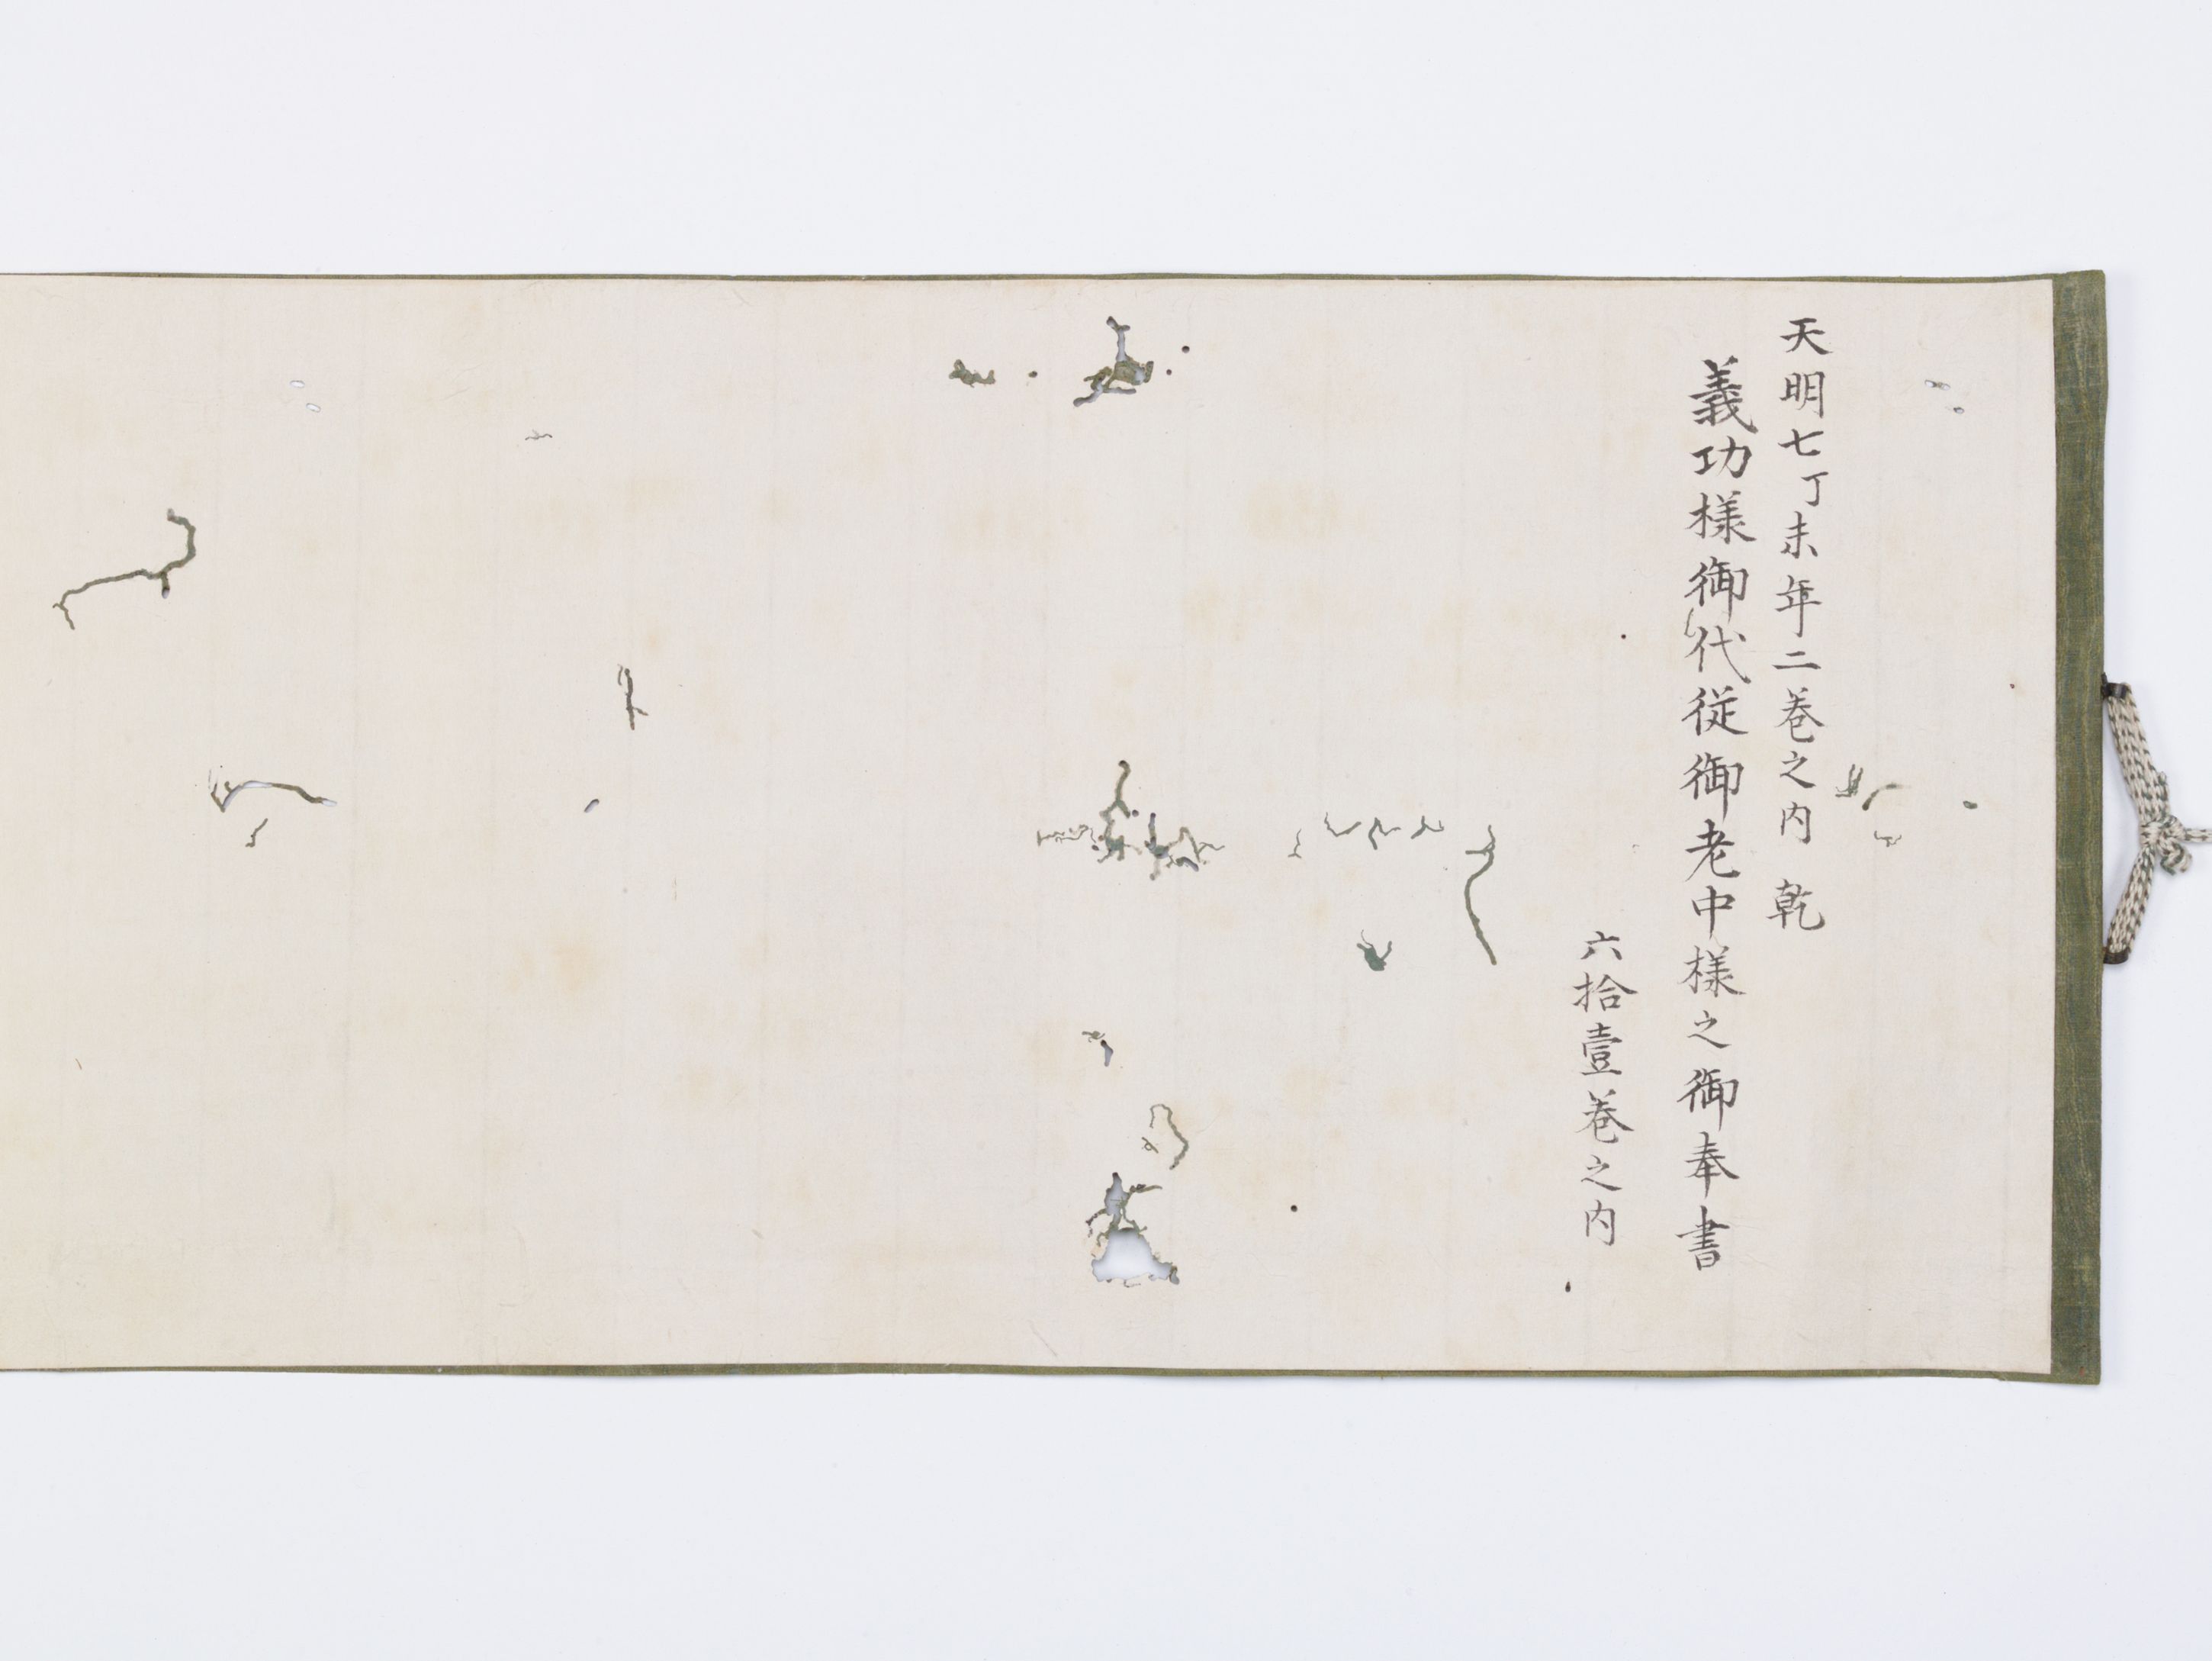 天明七丁未年二巻之内 乾
義功様御代従御老中様之御奉書
六拾壹巻之内